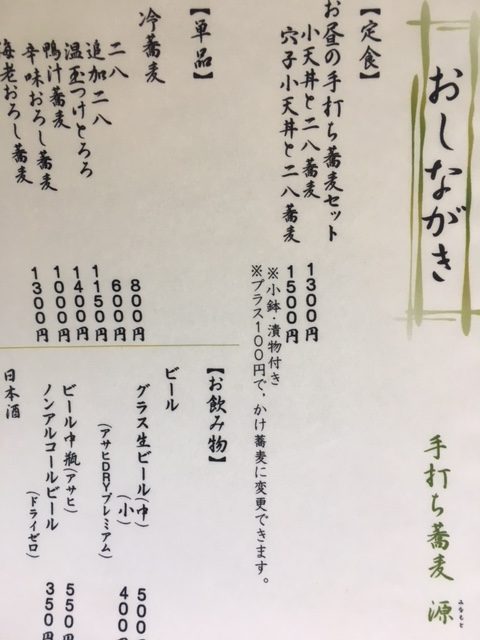 おしながき
手打ち蕎麦 源
みなもと
【定食】
お昼の手打ち蕎麦セット
小天丼と二八蕎麦 1300円
穴子小天丼と二八蕎麦 1500円
※小鉢・漬物付き
※プラス100円で、かけ蕎麦に変更できます。
【単品】
冷蕎麦
二八 800円
追加二八 600円
温玉つけとろろ 1150円
鴨汁蕎麦 1400円
辛味おろし蕎麦 1000円
海老おろし蕎麦 1300円
【お飲み物】
ビール
グラス生ビール(中) 500
(小) 400
(アサヒDRYプレミアム)
ビール中瓶(アサヒ) 550
ノンアルコールビール 350
(ドライゼロ)
日本酒